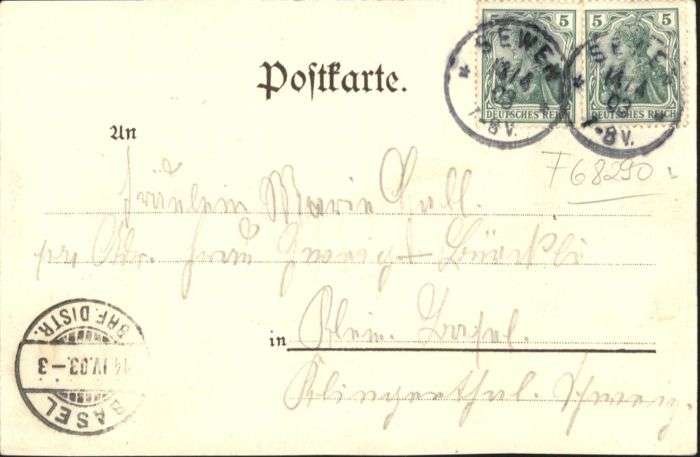 5 5
DEUTSCHES REICH DEUTSCHES REICH
* SEWEN *
14/4
03
7-8V.
* SEWEN
14/4
03
7-8V.
Postkarte.
An
F68290
Fräulein Marie
pr Adr. Frau
in Klein. Basel.
Klingenthal. Schweiz
BASEL BRF. DISTR.
14.IV.03.-3